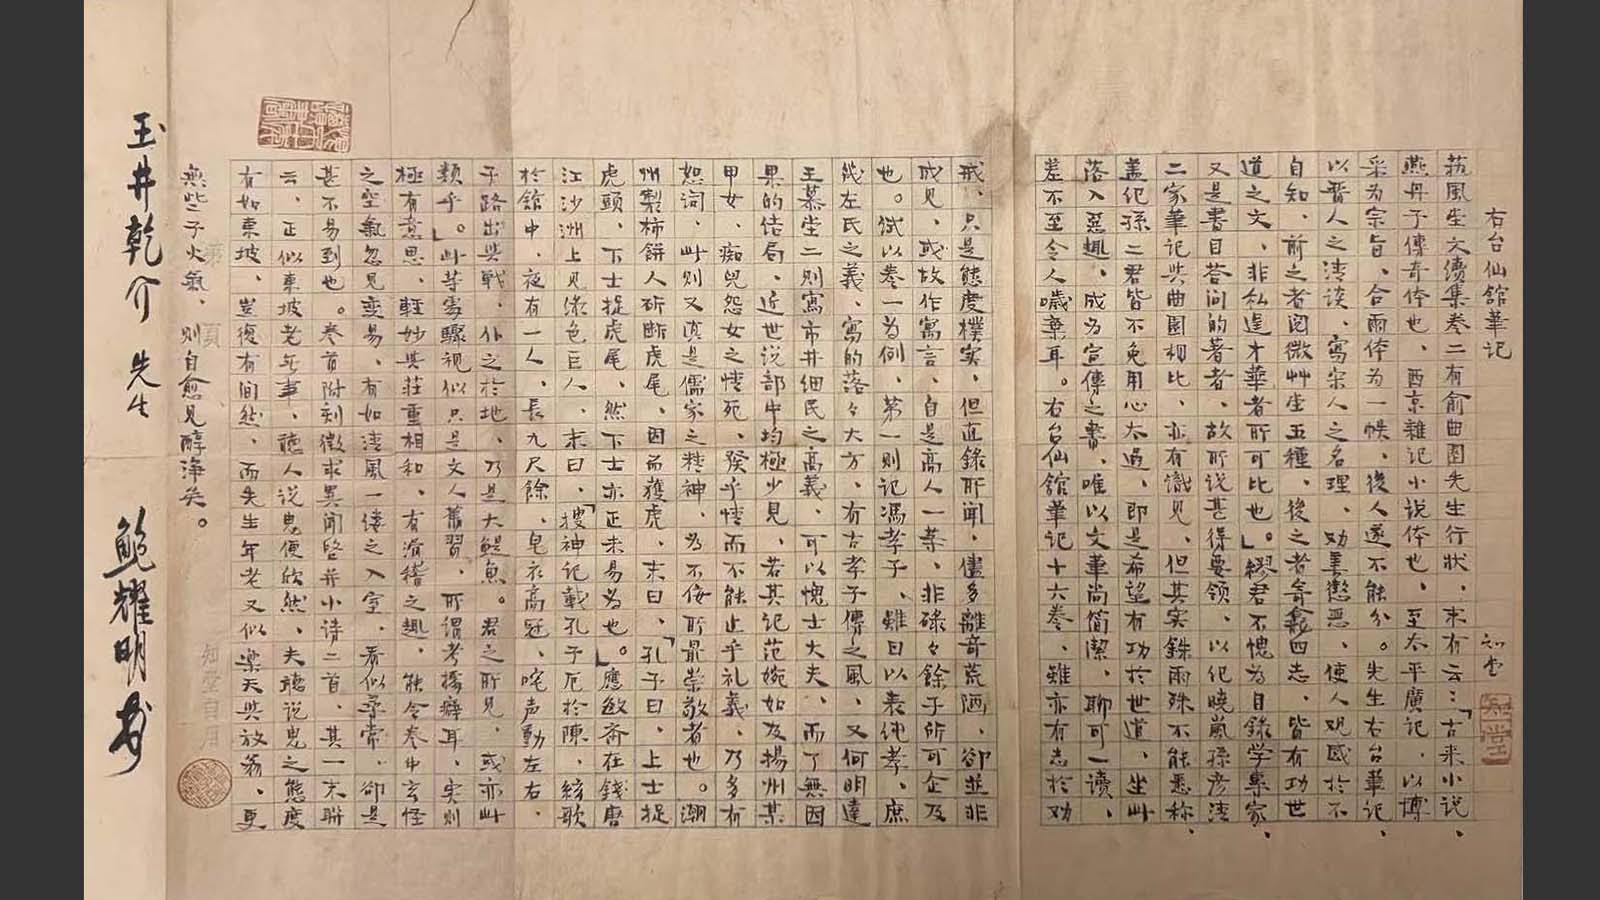 右台仙館筆記
知堂
知堂
藝風堂文續集卷二有俞曲園先生行狀、末有云：「古来小说、
燕丹子傳奇体也、西京雜记小说体也、至太平廣记、以博
采为宗旨、合两体为一帙、後人遂不能分。先生右台筆记、
以晋人之清谈、寫宋人之名理、劝善懲恶、使人观感於不
自知、前之者阅微艸堂五種、後之者寄龕四志、皆有功世
道之文、非私逞才華者所可比也」。繆君不愧为目錄学專家、
又是書目答问的著者、故所说甚得要领、以纪曉嵐孫彦清
二家筆记与曲園相比、亦有識见、但其实銖两殊不能悉称、
盖纪孫二君皆不免用心太過、即是希望有功於世道、坐此
落入惡趣、成为宣傳之書、唯以文筆尚简潔、聊可一讀、
差不至令人嘁棄耳。右台仙館筆记十六卷、雖亦有志於劝
戒、只是態度樸实、但直錄所聞、儘多離奇荒陋、卻並非
成见、或故作寓言、自是高人一等、非碌々餘子所可企及
也。试以卷一为例、第一则记馮孝子、雖曰以表纯孝、庶
幾左氏之義、寫的落々大方、有古孝子傳之风、又何明達
王慕堂二则寫市井细民之高義、可以愧士大夫、而了無因
果的结局、近世说部中均極少见、若其记范婉如及揚州某
甲女、痴兒怨女之情死、發乎情而不能止乎礼義、乃多有
恕词、此则又真是儒家之精神、为不佞所最崇敬者也。潮
州製柿餅人斫断虎尾、因而獲虎、末曰、「孔子曰、上士捉
虎頭、下士捉虎尾、然下士亦正未易为也」。應敏斋在錢唐
江沙洲上见绿色巨人、末曰、「搜神记載孔子厄於陳、絃歌
於館中、夜有一人、長九尺餘、皂衣高冠、咤声動左右、
子路出与戰、仆之於地、乃是大鯷魚。君之所见、或亦此
類乎」。此等處驟視似只是文人舊習、所谓考據癖耳、实则
極有意思、轻妙与莊重相和、有滑稽之趣、能令卷中玄怪
之空氣忽见变易、有如清風一缕之入室、看似尋常、卻是
甚不易到也。卷首附刻徵求異闻啓并小诗二首、其一末聯
云、正似東坡老無事、聽人说鬼便欣然、夫聽说鬼之態度
有如東坡、豈復有间然、而先生年老又似樂天与放翁、更
無些子火氣、则自愈见醇淨矣。
知堂自用
玉井乾介 先生
鮑耀明